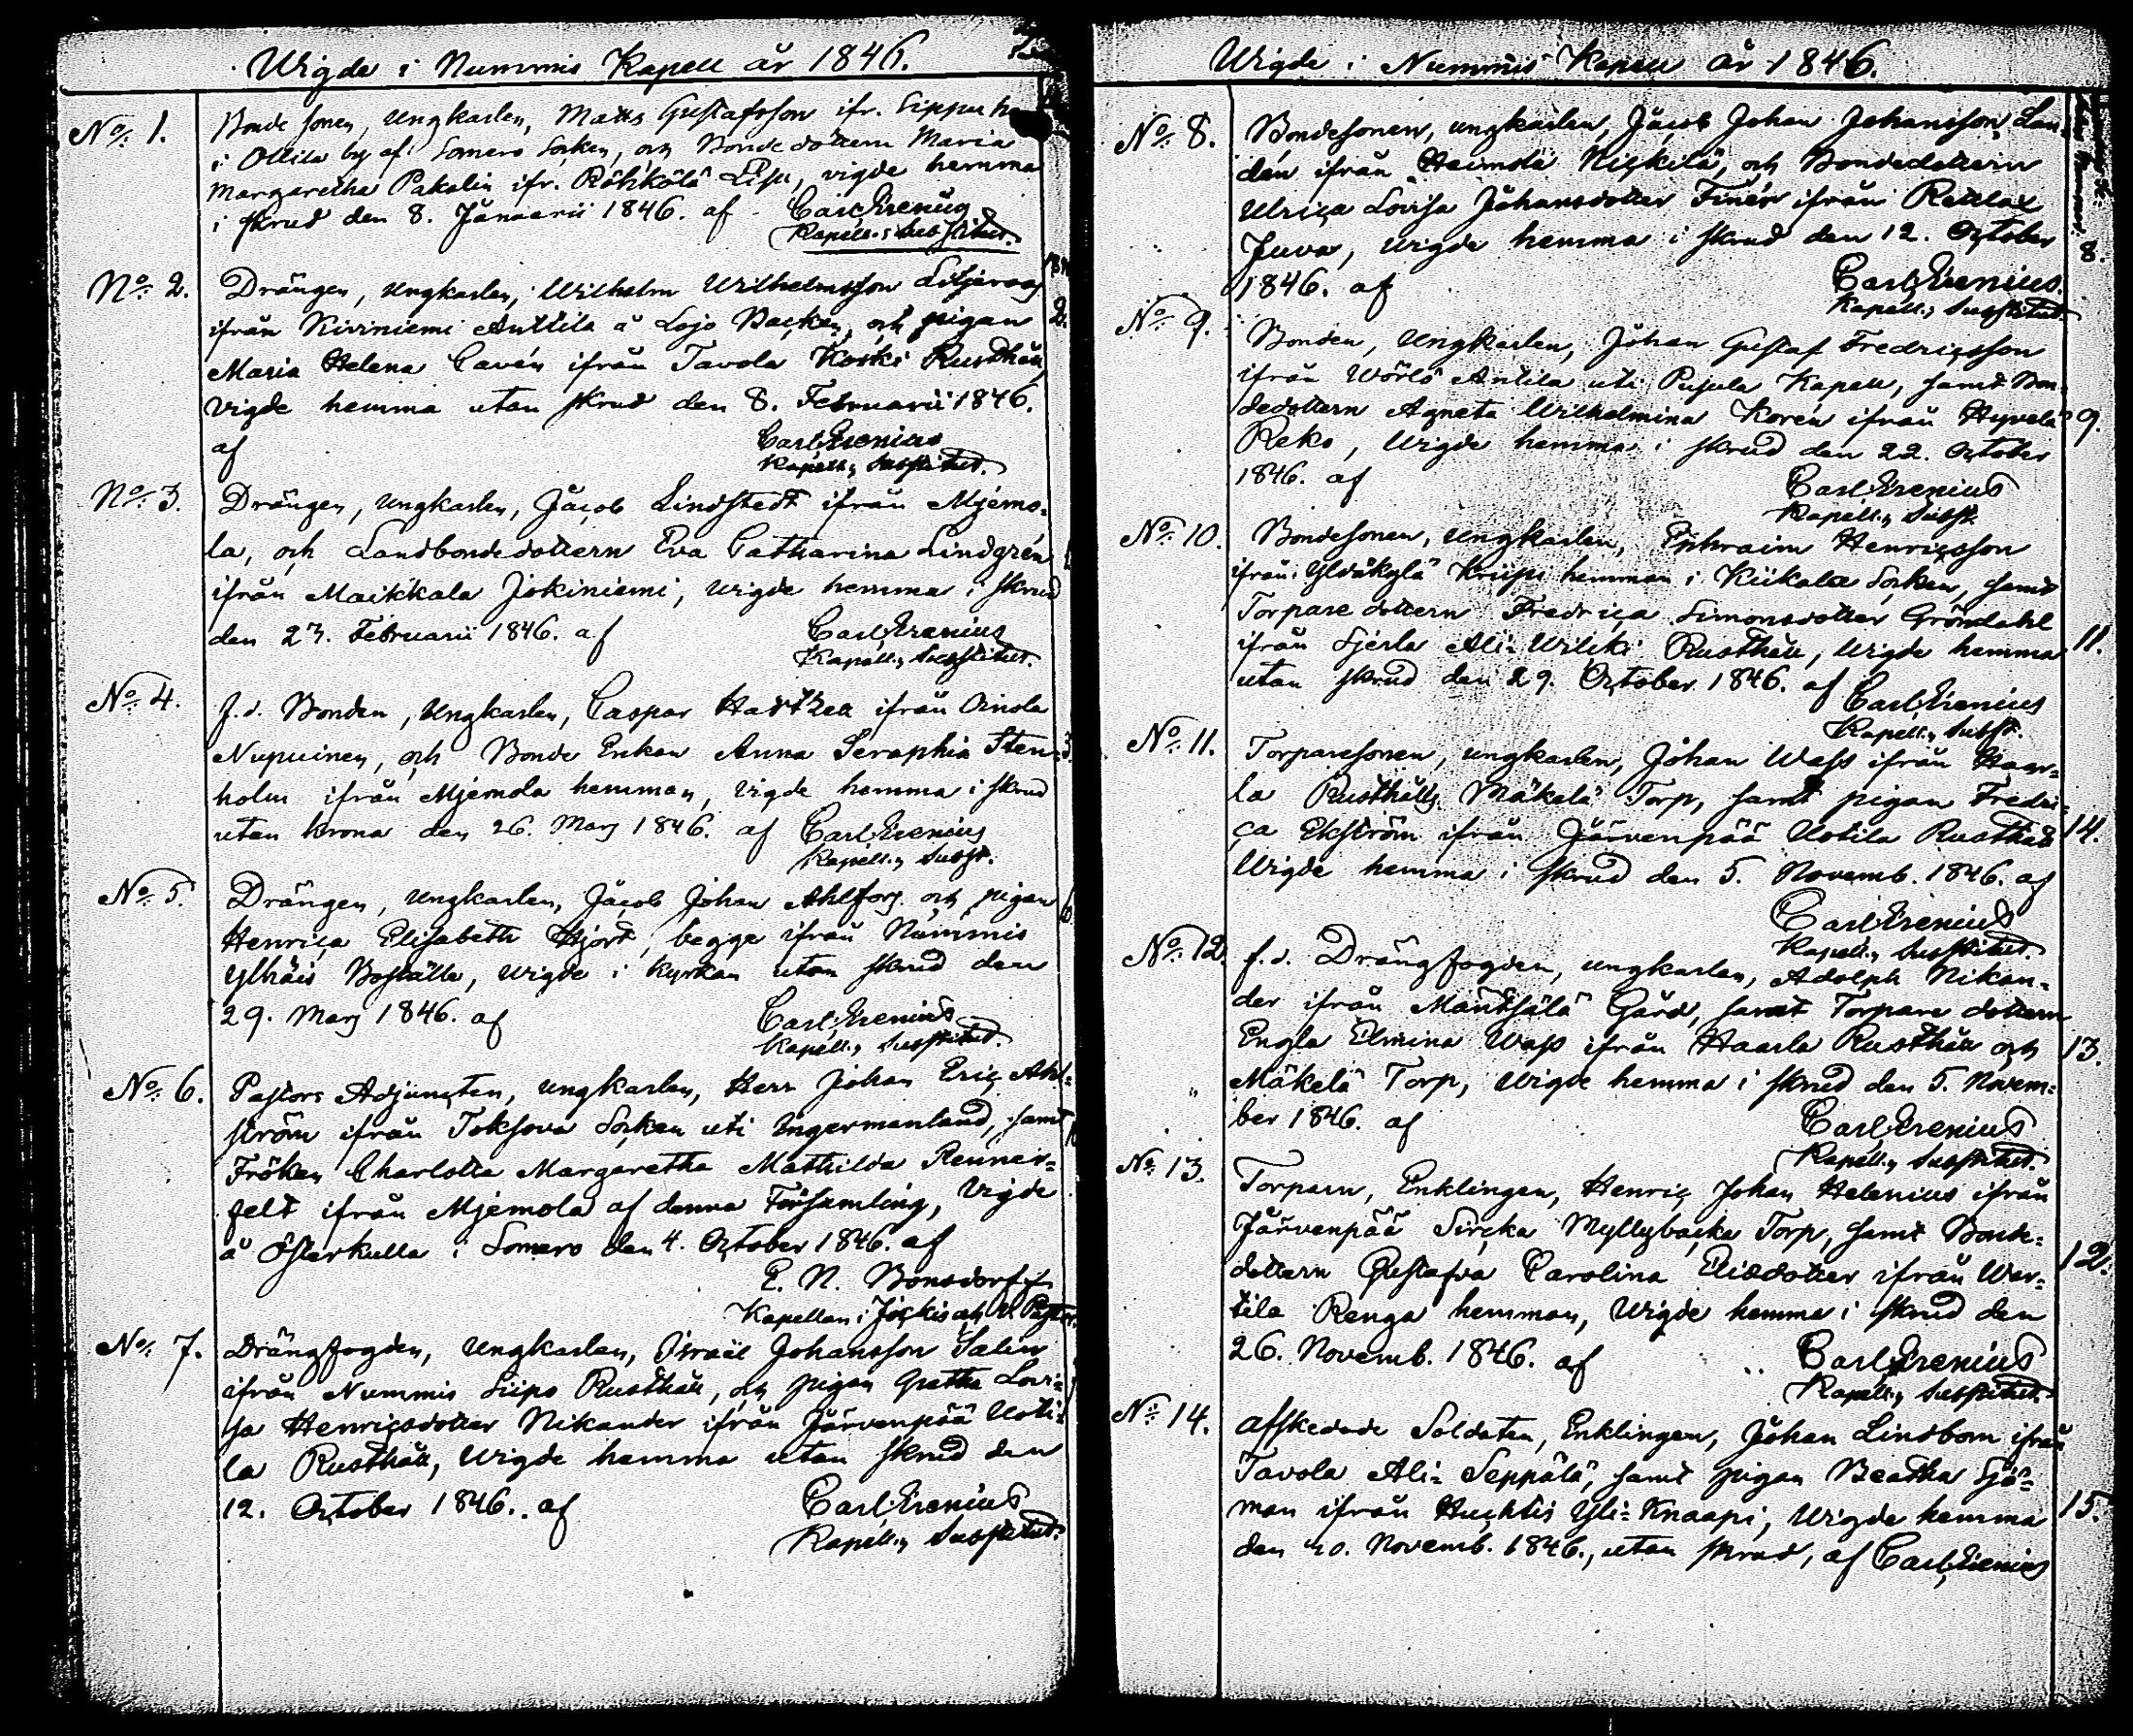 Wigde i Nummis Kapell år 1846.
No 1. Bondesonen, Ungkarlen, Matts Gustafsson ifr. Sippu
i Ollila by af Somero Socken, och Bondedottern Maria
Margaretha Pakalin ifr. Röhkölä Lisu, vigde hemma
i skrud den 8. Januarii 1846. af Carl Irenius
Kapell:s Substitut.
No 2. Drängen, Ungkarlen, Wilhelm Wilhelmsson
ifrån Kiviniemi Anttila å Lojo Backen, och pigan 2.
Maria Helena Cavén ifrån Tavola Koski Rusthåll,
vigde hemma utan skrud den 8. Februarii 1846.
af Carl Irenius
Kapell:s Substitut.
No 3. Drängen, Ungkarlen, Jacob Lindstedt ifrån Mjemo-
la, och Landbondedottern Eva Catharina Lindgrén
ifrån Maikkala Jokiniemi, wigde hemma i skrud
den 23. Februarii 1846. af Carl Irenius
Kapell:s Substitut.
No 4. f.d. Bonden, Ungkarlen, Caspar ifrån Oinola
Nupuinen, och Bonde Enkan Anna Seraphia Sten-
holm ifrån Mjemola hemman, vigde hemma i skrud
utan krona den 26. Marj 1846. af Carl Irenius
Kapell:s Subst.
No 5. Drängen, Ungkarlen, Jacob Johan Ahlfors och pigan
Henrica Elisabeth Hjort, begge ifrån Nummis
Ylhäis Boställe, wigde i kyrkan utan skrud den
29. Marj 1846. af Carl Irenius
Kapell:s Substitut.
No 6. Pastors Adjuncten, Ungkarlen, Herr Johan Eric Ahl-
ström ifrån Toksova Socken uti Ingermanland, samt
Fröken Charlotta Margaretha Mathilda Renner-
felt ifrån Mjemola af denna Församling, Vigde
å Österkulla i Somero den 4. October 1846. af
E. N. Bonsdorff
Kapellan i Jockis och V. Pastor.
No 7. Drängfogden, Ungkarlen, Israel Johansson Salin
ifrån Nummis Siipo Rusthåll, och pigan Gretha Lovi-
sa Henricsdotter Nikander ifrån Järvenpää Uoti-
la Rusthåll, Wigde hemma utan skrud den
12. October 1846. af Carl Irenius
Kapell:s Substitut.
Wigde i Nummis Kapell år 1846.
No 8. Bondesonen, ungkarlen, Jacob Johan Johansson Lan-
dén ifrån Heimola Nickilä, och Bondedottern
Ulrica Lovisa Johansdotter Finér ifrån Retlax
Juva, wigde hemma i skrud den 12. October 8.
1846. af Carl Irenius.
Kapell:s Substitut.
No 9. Bonden, Ungkarlen, Johan Gustaf Fredricsson
ifrån Wörlö Antila uti Pusula Kapell, samt Bon-
dedottern Agneta Wilhelmina Korén ifrån Hyvelä 9.
Reko, Wigde hemma i skrud den 22. October
1846. af Carl Irenius
Kapell:s Subst.
No 10. Bondesonen, Ungkarlen, Ephraim Henricsson
ifrån Kriipi hemman i Kiikala Socken, samt
Torparedottern Fredrica Simonsdotter Gröndahl
ifrån Sjerla Ali-Wilcki Rusthåll, Wigde hemma 11.
utan skrud den 29. October 1846. af Carl Irenius
Kapell:s Subst.
No 11. Torparesonen, ungkarlen, Johan Wass ifrån Haar-
la Rusthålls Mäkelä Torp, samt pigan Fredri-
ca Ekström ifrån Järvenpää Uotila Rusthåll 14.
Wigde hemma i skrud den 5. Novemb. 1846. af
Carl Irenius
Kapell:s Substitut.
No 12. f.d. Drängfogden, ungkarlen, Adolph Nikan-
der ifrån Mäntsälä Gård, samt Torpare dottern
Engla Elmina Wass ifrån Haarla Rusthåll och 13.
Mäkelä Torp, Wigde hemma i skrud den 5. Novem-
ber 1846. af Carl Irenius
Kapell:s Substitut.
No 13. Torparn, Enklingen, Henric Johan Helenius ifrån
Järvenpää Sircka Myllybacka Torp, samt Bonde-
dottern Gustafva Carolina Eliedotter ifrån War- 12.
tila Renga hemman, Wigde hemma i skrud den
26. Novemb. 1846. af Carl Irenius
Kapell:s Substitut.
No 14. Afskedade Soldaten, Enklingen, Johan Lindbom ifrån
Tavola Ali-Seppälä, samt pigan Beatha Sjö-
man ifrån Huchtis Yli-Knaapi, Wigde hemma 15.
den 30. Novemb. 1846., utan skrud, af Carl Irenius